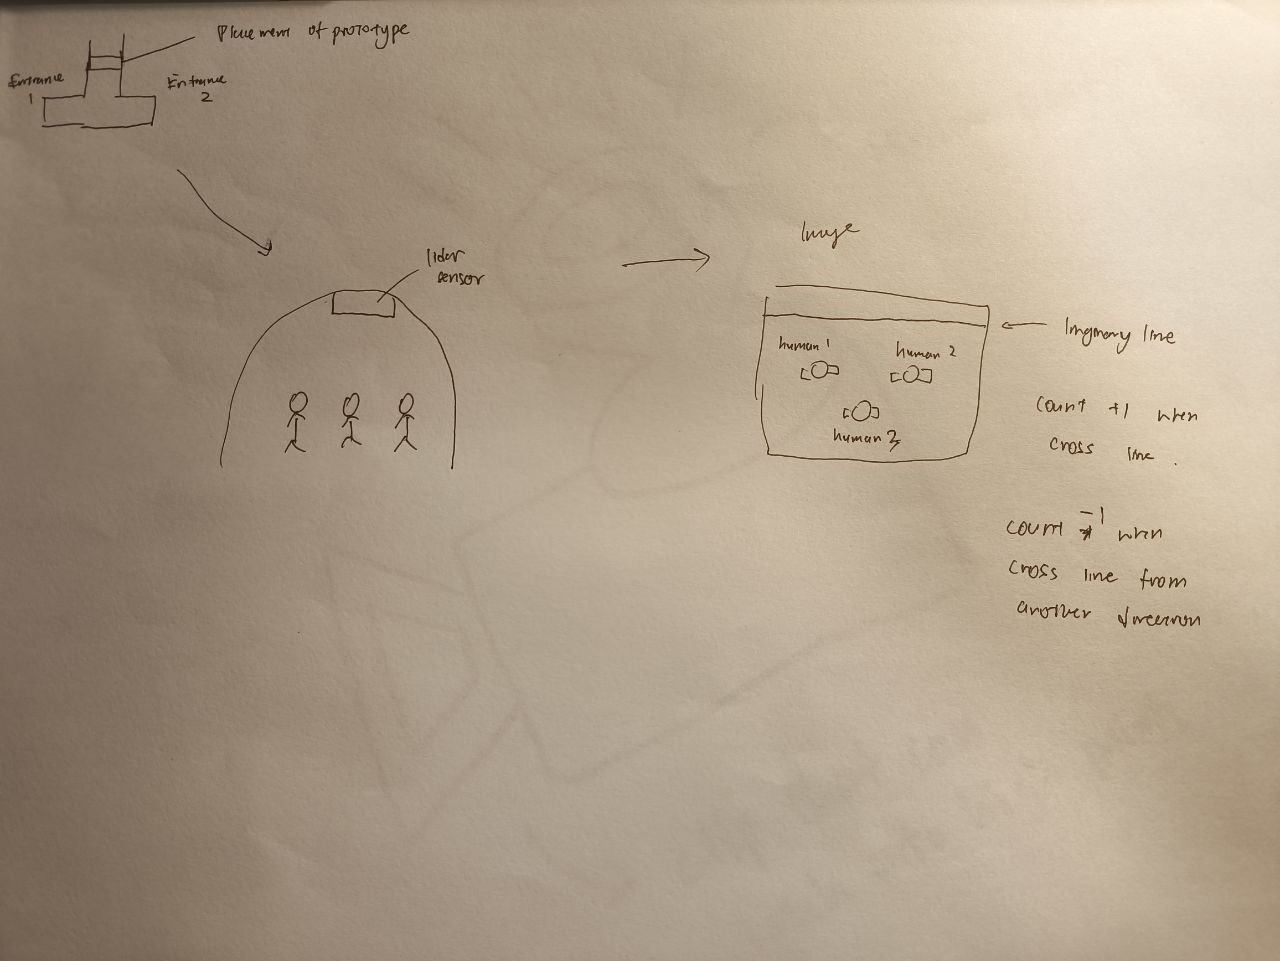 Placement of prototype
Entrance
1
Entrance
2
lidar
sensor
Image
Imaginary line
human 1
human 2
human 3
count +1 when
cross line.
count -1 when
cross line from
another direction